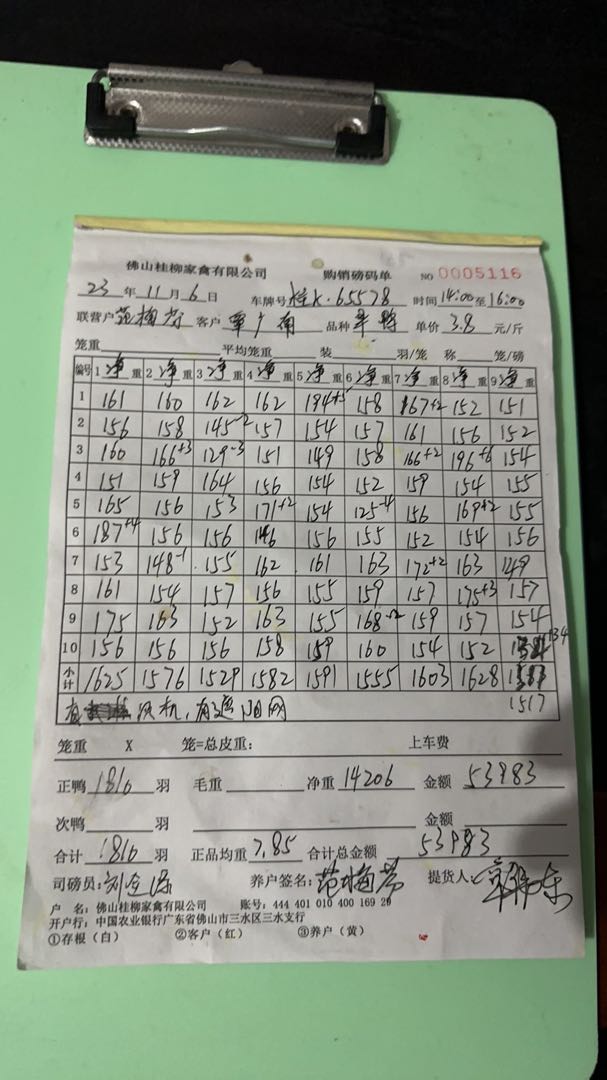 佛山桂柳家禽有限公司 购销磅码单 NO 0005116
23 年 11 月 6 日 车牌号 桂K·65578 时间 14:00 至 16:00
联营户 范梅芳 客户 覃广南 品种 半鸭 单价 3.8 元/斤
笼重 平均笼重 装 羽/笼 称 笼/磅
编号 1 净重 2 净重 3 净重 4 净重 5 净重 6 净重 7 净重 8 净重 9 净重
1 161 160 162 162 194+5 158 167+2 152 151
2 156 158 145-2 157 154 157 161 156 152
3 160 166+3 129-3 151 149 158 166+2 196+6 154
4 151 159 164 156 154 152 159 154 155
5 165 156 153 171+2 154 125-4 156 169+2 155
6 187+4 156 156 146 156 155 152 154 156
7 153 148-1 155 162 161 163 172+2 163 149
8 161 154 157 156 155 159 157 175+3 157
9 175 163 152 163 155 168-2 159 157 154
10 156 156 156 158 159 160 154 152 134
小计 1625 1576 1529 1582 1591 1555 1603 1628
1517
笼重 X 笼=总皮重: 上车费
正鸭 1810 羽 毛重 净重 14206 金额 53983
次鸭 羽 金额
合计 1810 羽 正品均重 7.85 合计总金额 53983
司磅员: 养户签名: 范梅芳 提货人:
户 名: 佛山桂柳家禽有限公司 账号: 444 401 010 400 169 29
开户行: 中国农业银行广东省佛山市三水区三水支行
①存根（白） ②客户（红） ③养户（黄）